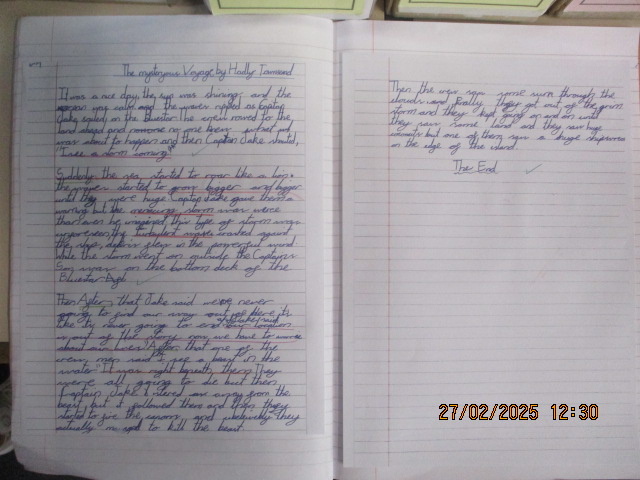 The mysterious Voyage by Hadly Townsend
It was a nice day, the sun was shining and the
was calm and the waves rippled as captain
Jake sailed on the Bluestar the crew rowed to the
land ahead and no one knew what
was about to happen and then Captain Jake shouted,
"I see a storm coming"
Suddenly the sea started to roar like a lion.
the waves started to grow bigger and bigger
until they were huge Captain Jake gave them a
warning but the menacing storm was worse
than even he imagined this type of storm was
the turbulent waves crashed against
the ship, debris flew in the powerful wind
while the storm went on outside the Captain's
Son was on the bottom deck of the
Bluestar
Then After that Jake said we're never
going to find our way out of here it's
like is never going to end
out of this story now we have to
about our lives" After that one of the
crew men said "I see a beast in the
water" It was right beneath them They
were all going to die but then
Captain Jake steered away from the
beast but it followed them and then they
started to the and they
actually managed to kill the beast.
Then the crew saw some sun through the
clouds and finally they got out of the grim
storm and they kept going on and on until
they saw some land and they saw huge
but one of them saw a huge shipwreck
on the edge of the island
The End
27/02/2025 12:30